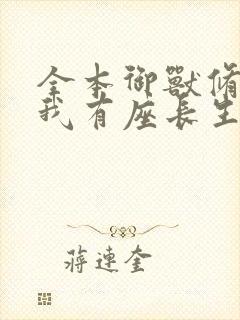 全本御獸脩
我有座長生
蔣連奎